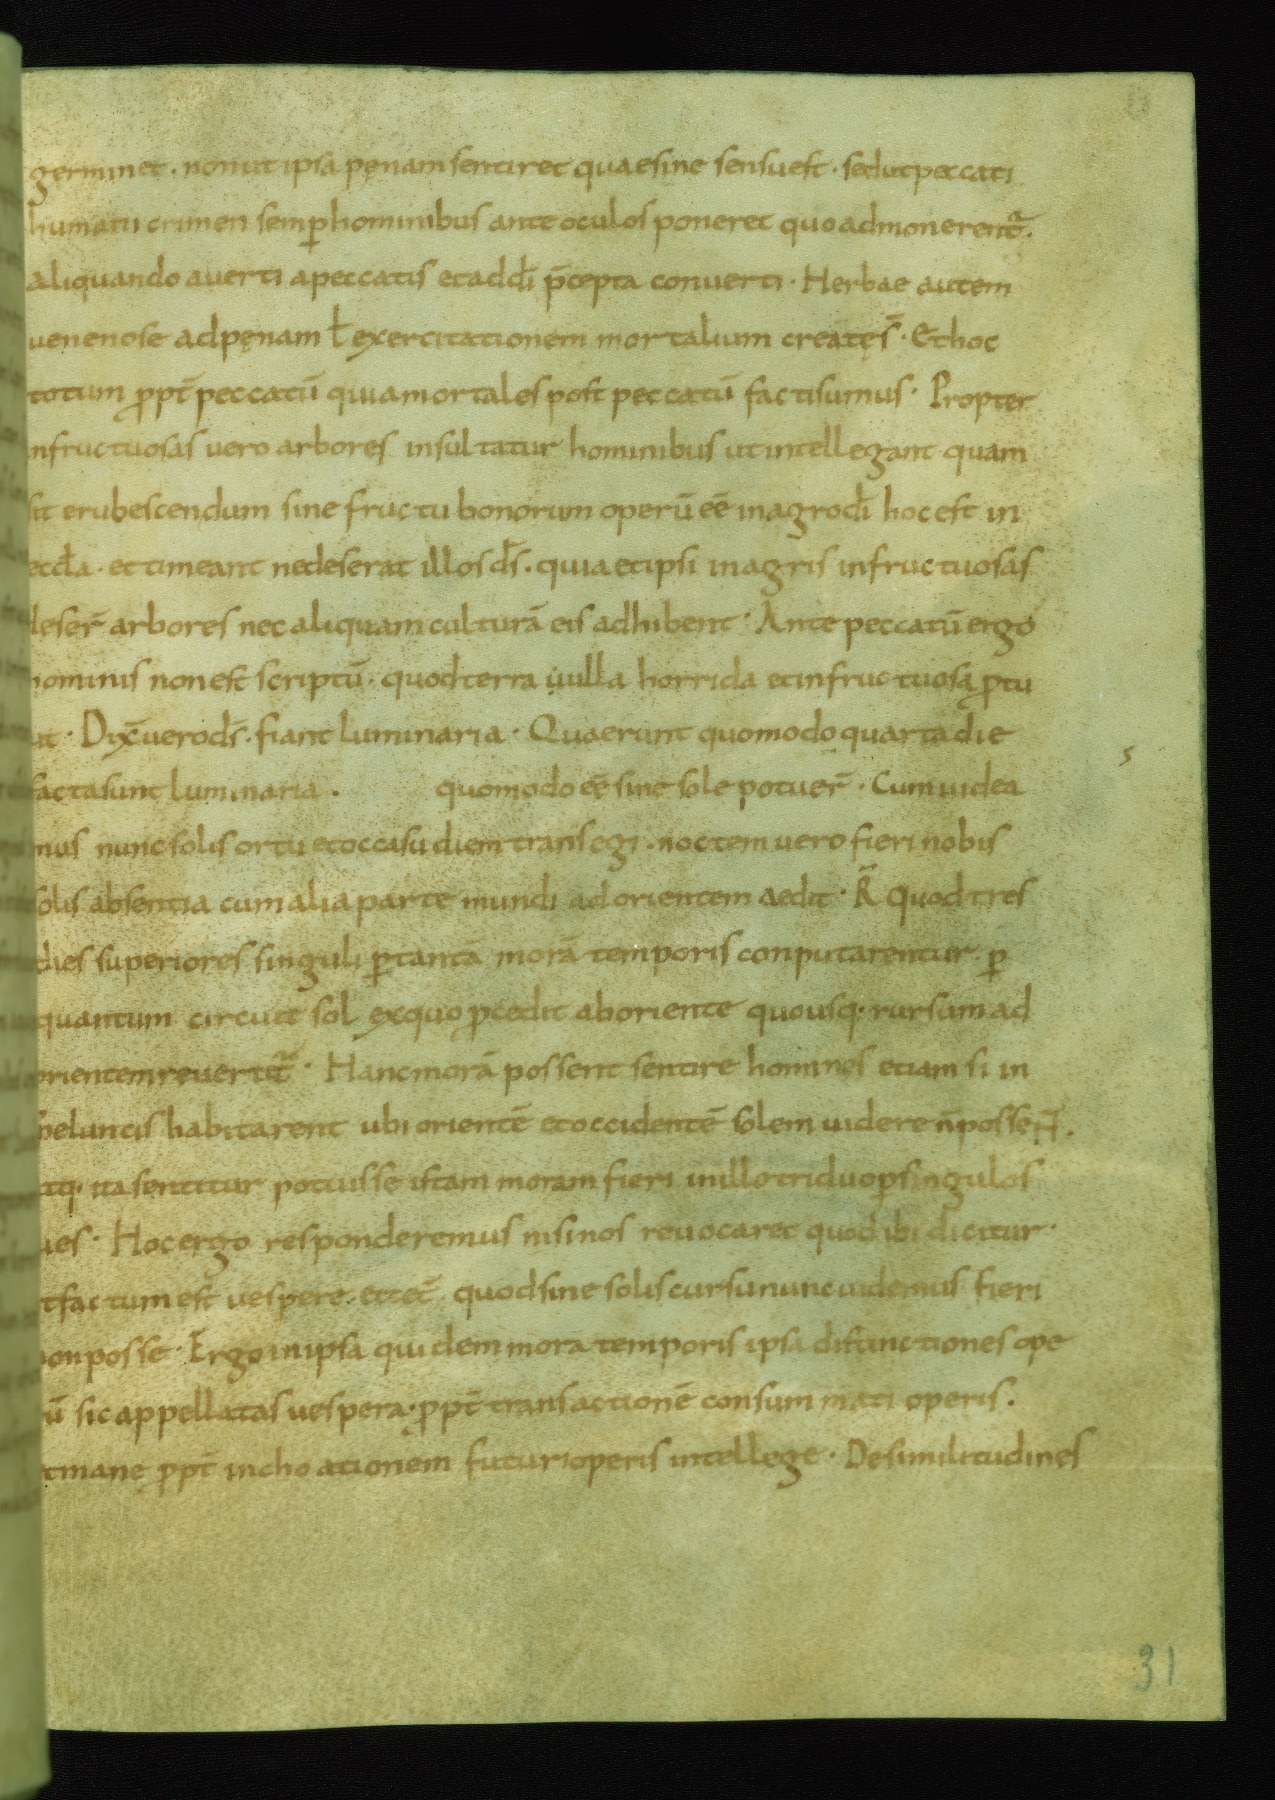 germinet · non ut ipsa pęnam sentiret quae sine sensu est · sed ut peccati
humani crimen semp̄ hominibus ante oculos poneret quo admonerent̄ ·
aliquando averti a peccatis et ad dī p̄cepta converti · Herbae autem
venenose ad pęnam ł exercitationem mortalium createˢ̄ · Et hoc
totum ꝓpt̄ peccatū quia mortales post peccatū facti sumus · Propter
infructuosas vero arbores insultatur hominibus ut intellegant quam
sit erubescendum sine fructu bonorum operū eē in agro dī hoc est in
eccła · et timeant ne deserat illos d̄s · quia et ipsi in agris infructuosas
deser̄ arbores nec aliquam culturā eis adhibent · Ante peccatū ergo
hominis non est scriptū · quod terra nulla horrida et infructuosa ꝓtu
it · Dix̄ vero d̄s · fiant luminaria · Quaerunt quomodo quarta die
facta sunt luminaria · quomodo eē sine sole potuer̄ · Cum videa
mus nunc solis ortu et occasu diem transegi · noctem vero fieri nobis
solis absentia cum alia parte mundi ad orientem aedit · R̄ Quod tres
dies superiores singuli ꝑ tantā morā temporis conputarentur · ꝑ
quantum circuit sol ex quo ꝓcedit ab oriente quousq· rursum ad
orientem revertit̄ · Hanc morā possent sentire homines etiam si in
speluncis habitarent ubi orientē et occidentē solem videre n̄ possen̄t ·
atq· ita sentitur potuisse istam moram fieri in illo triduo ꝑ singulos
dies · Hoc ergo responderemus nisi nos revocaret quod ibi dicitur ·
et factum est vespere · et rec̄ quod sine solis cursu nunc videmus fieri
non posse · Ergo in ipsa quidem mora temporis ipsa distinctiones ope
rū sic appellatas vespera · ꝓpt̄ transactionē consummati operis ·
et mane ꝓpt̄ inchoationem futuri operis intellege · De similitudines
31